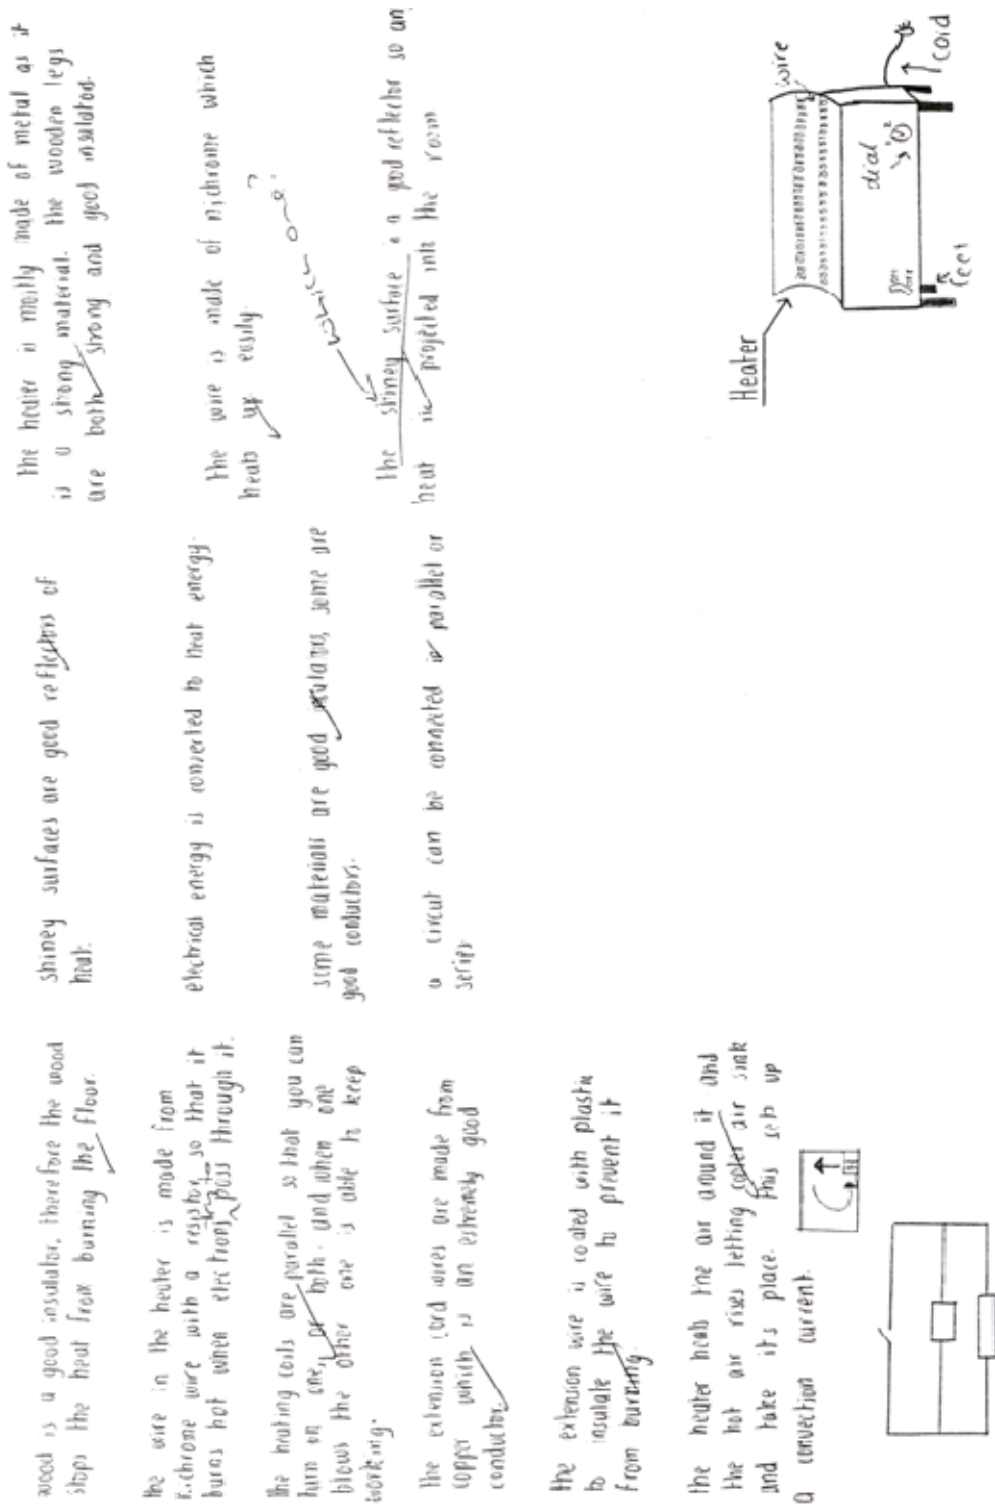 wood is a good insulator, therefore the wood
stops the heat from burning the floor.
the wire in the heater is made from
nichrome wire with a resistor, so that it
burns hot when electrons pass through it.
the heating coils are parallel so that you can
turn on one, or both. and when one
blows the other one is able to keep
working.
the extension cord wires are made from
copper which is an extremely good
conductor.
the extension wire is coated with plastic
to insulate the wire to prevent it
from burning.
the heater heats the air around it and
the hot air rises letting cooler air sink
and take its place. this sets up
a convection current.
shiney surfaces are good reflectors of
heat.
electrical energy is converted to heat energy.
some materials are good insulators, some are
good conductors.
a circut can be connected in parallel or
series
the heater is mostly made of metal as it
is a strong material. the wooden legs
are both strong and good insulators.
the wire is made of nichrome which
heats up easily
which one?
the shiney surface is a good reflector so any
heat is projected into the room.
Heater
wire
dial
feet
cord